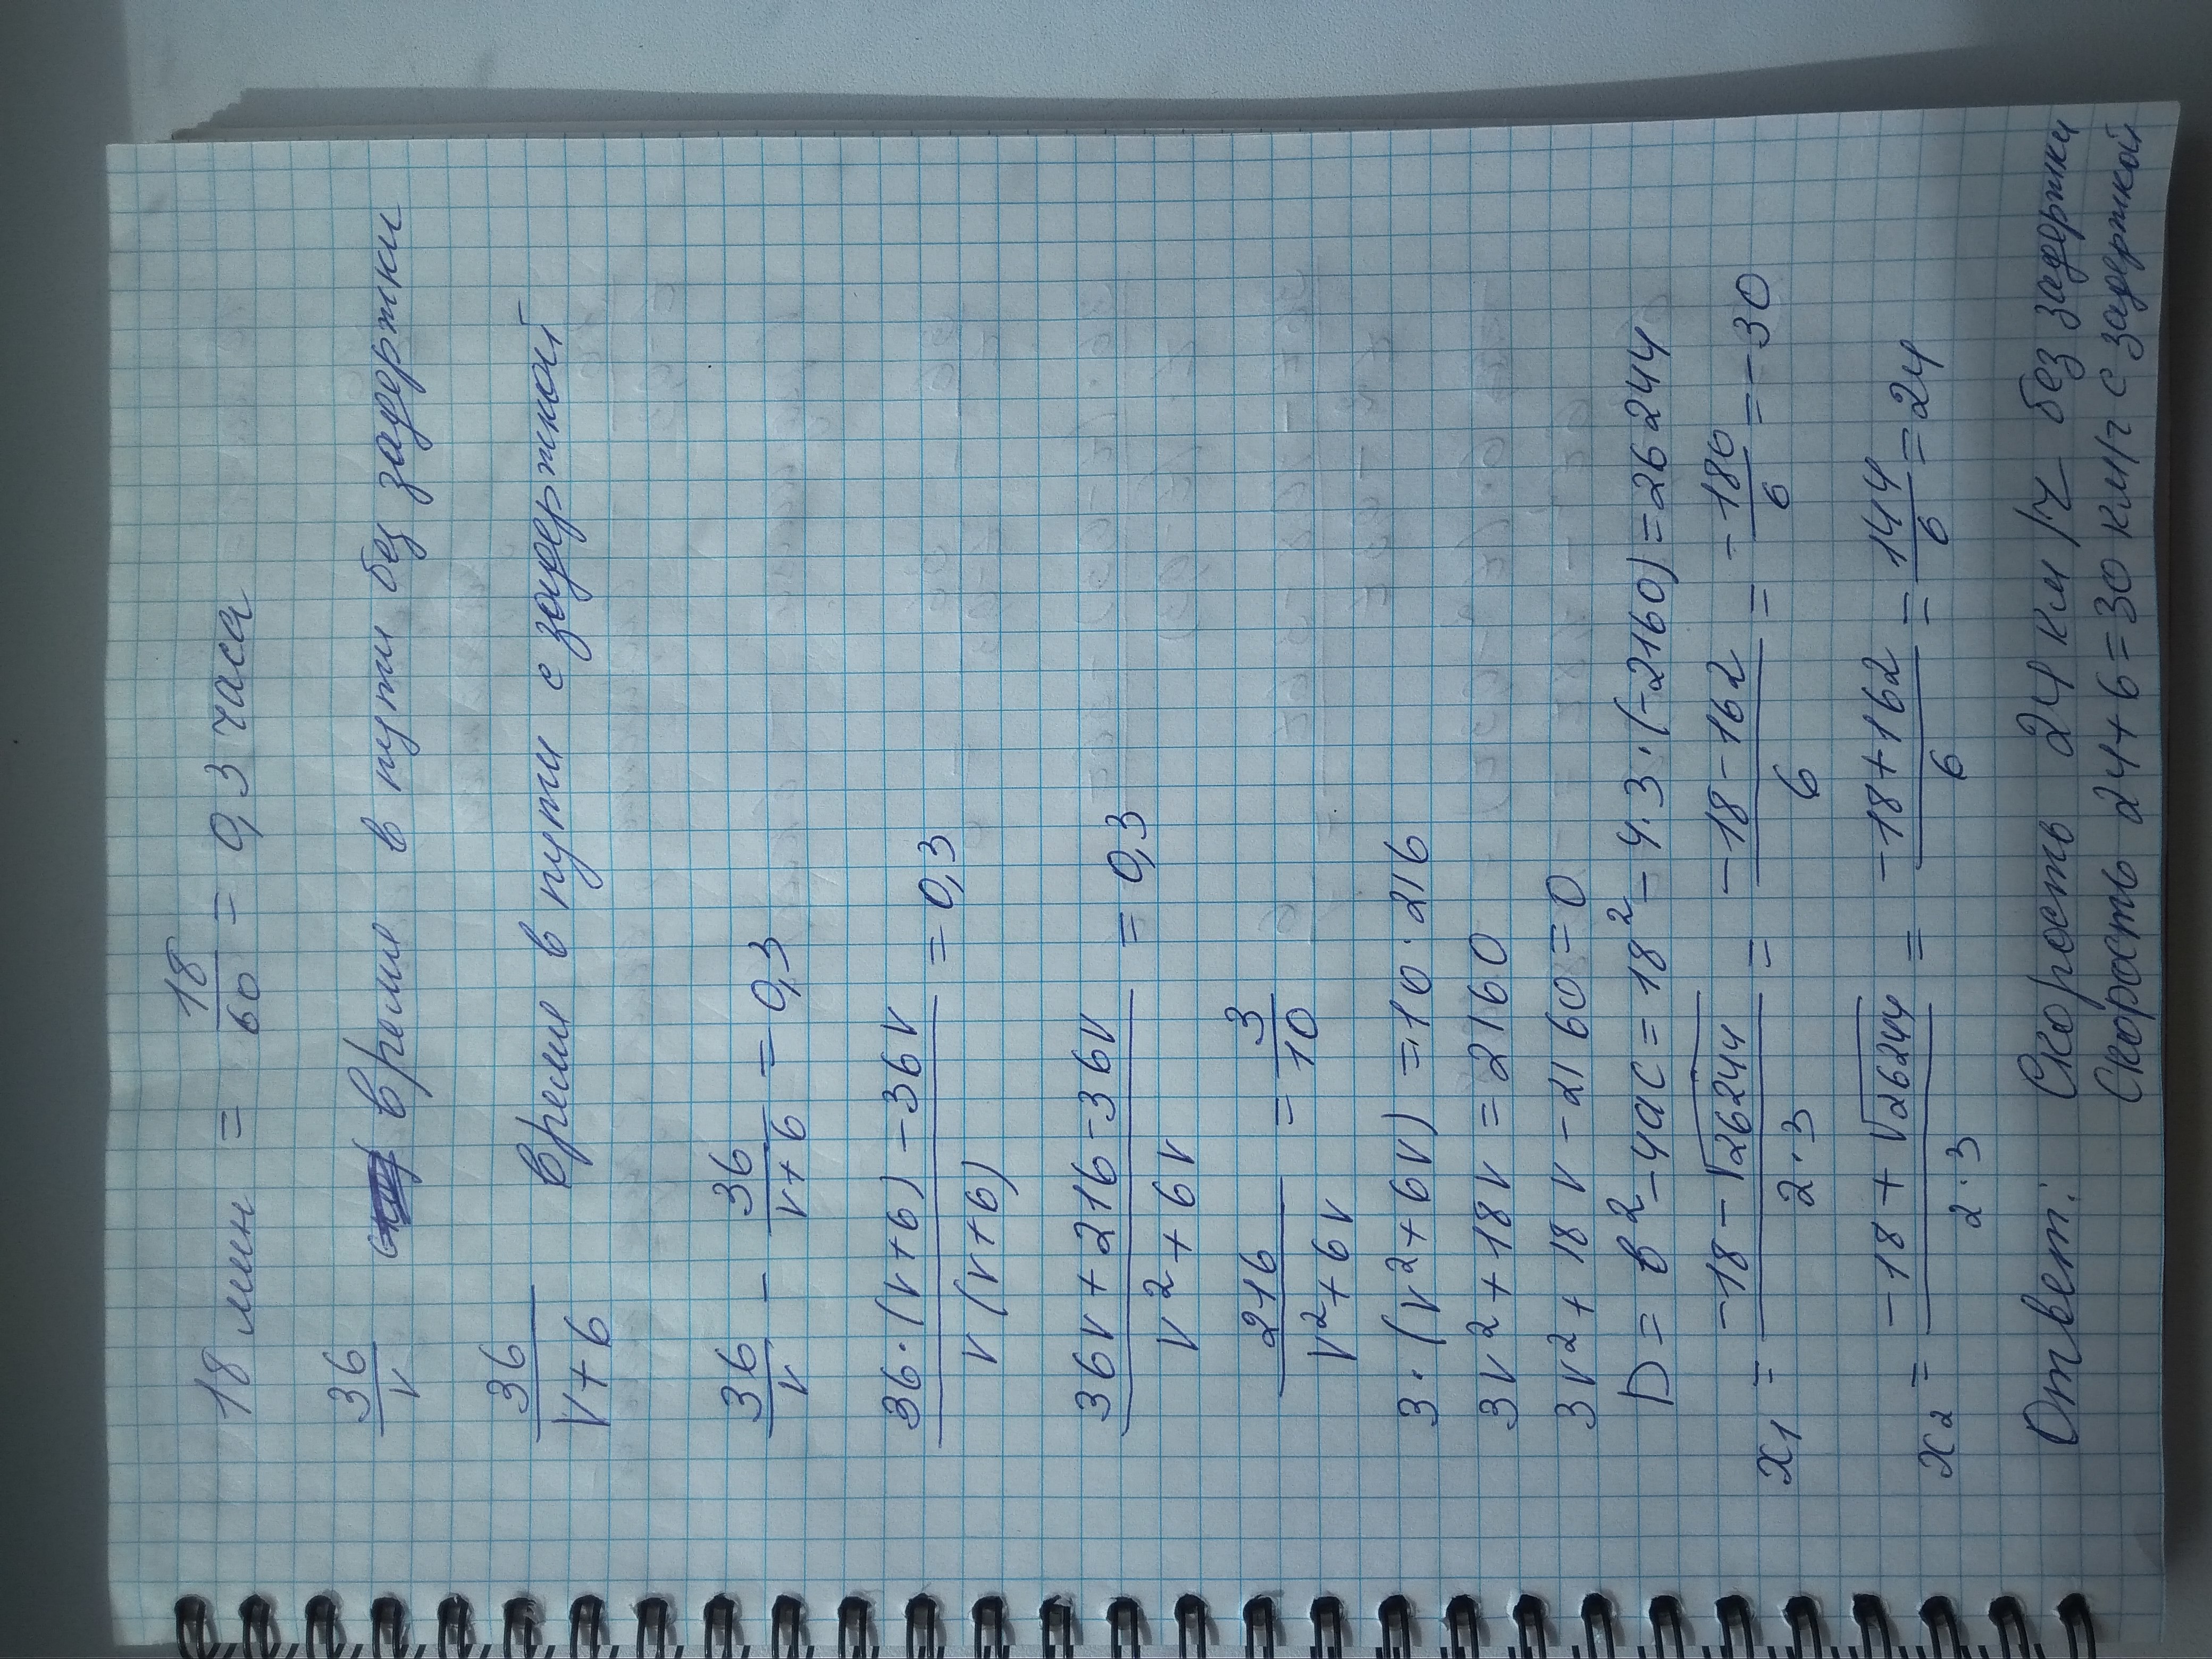 18 мин = 18/60 = 0,3 часа
36/v время в пути без задержки
36/(v+6) время в пути с задержкой
36/v - 36/(v+6) = 0,3
(36·(v+6) - 36v)/(v(v+6)) = 0,3
(36v + 216 - 36v)/(v² + 6v) = 0,3
216/(v² + 6v) = 3/10
3·(v² + 6v) = 10·216
3v² + 18v = 2160
3v² + 18v - 2160 = 0
D = в² - 4ac = 18² - 4·3·(-2160) = 26244
x₁ = (-18 - √26244)/(2·3) = (-18 - 162)/6 = -180/6 = -30
x₂ = (-18 + √26244)/(2·3) = (-18 + 162)/6 = 144/6 = 24
Ответ: Скорость 24 км/ч без задержки
Скорость 24 + 6 = 30 км/ч с задержкой